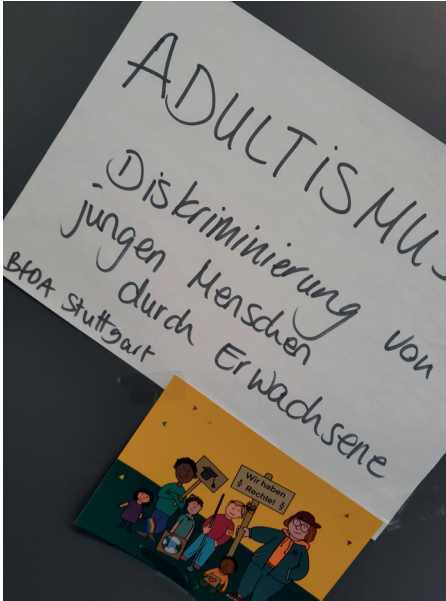 ADULTISMUS
Diskriminierung von
jungen Menschen
durch Erwachsene
BfDA Stuttgart
Wir haben
§ Rechte! §